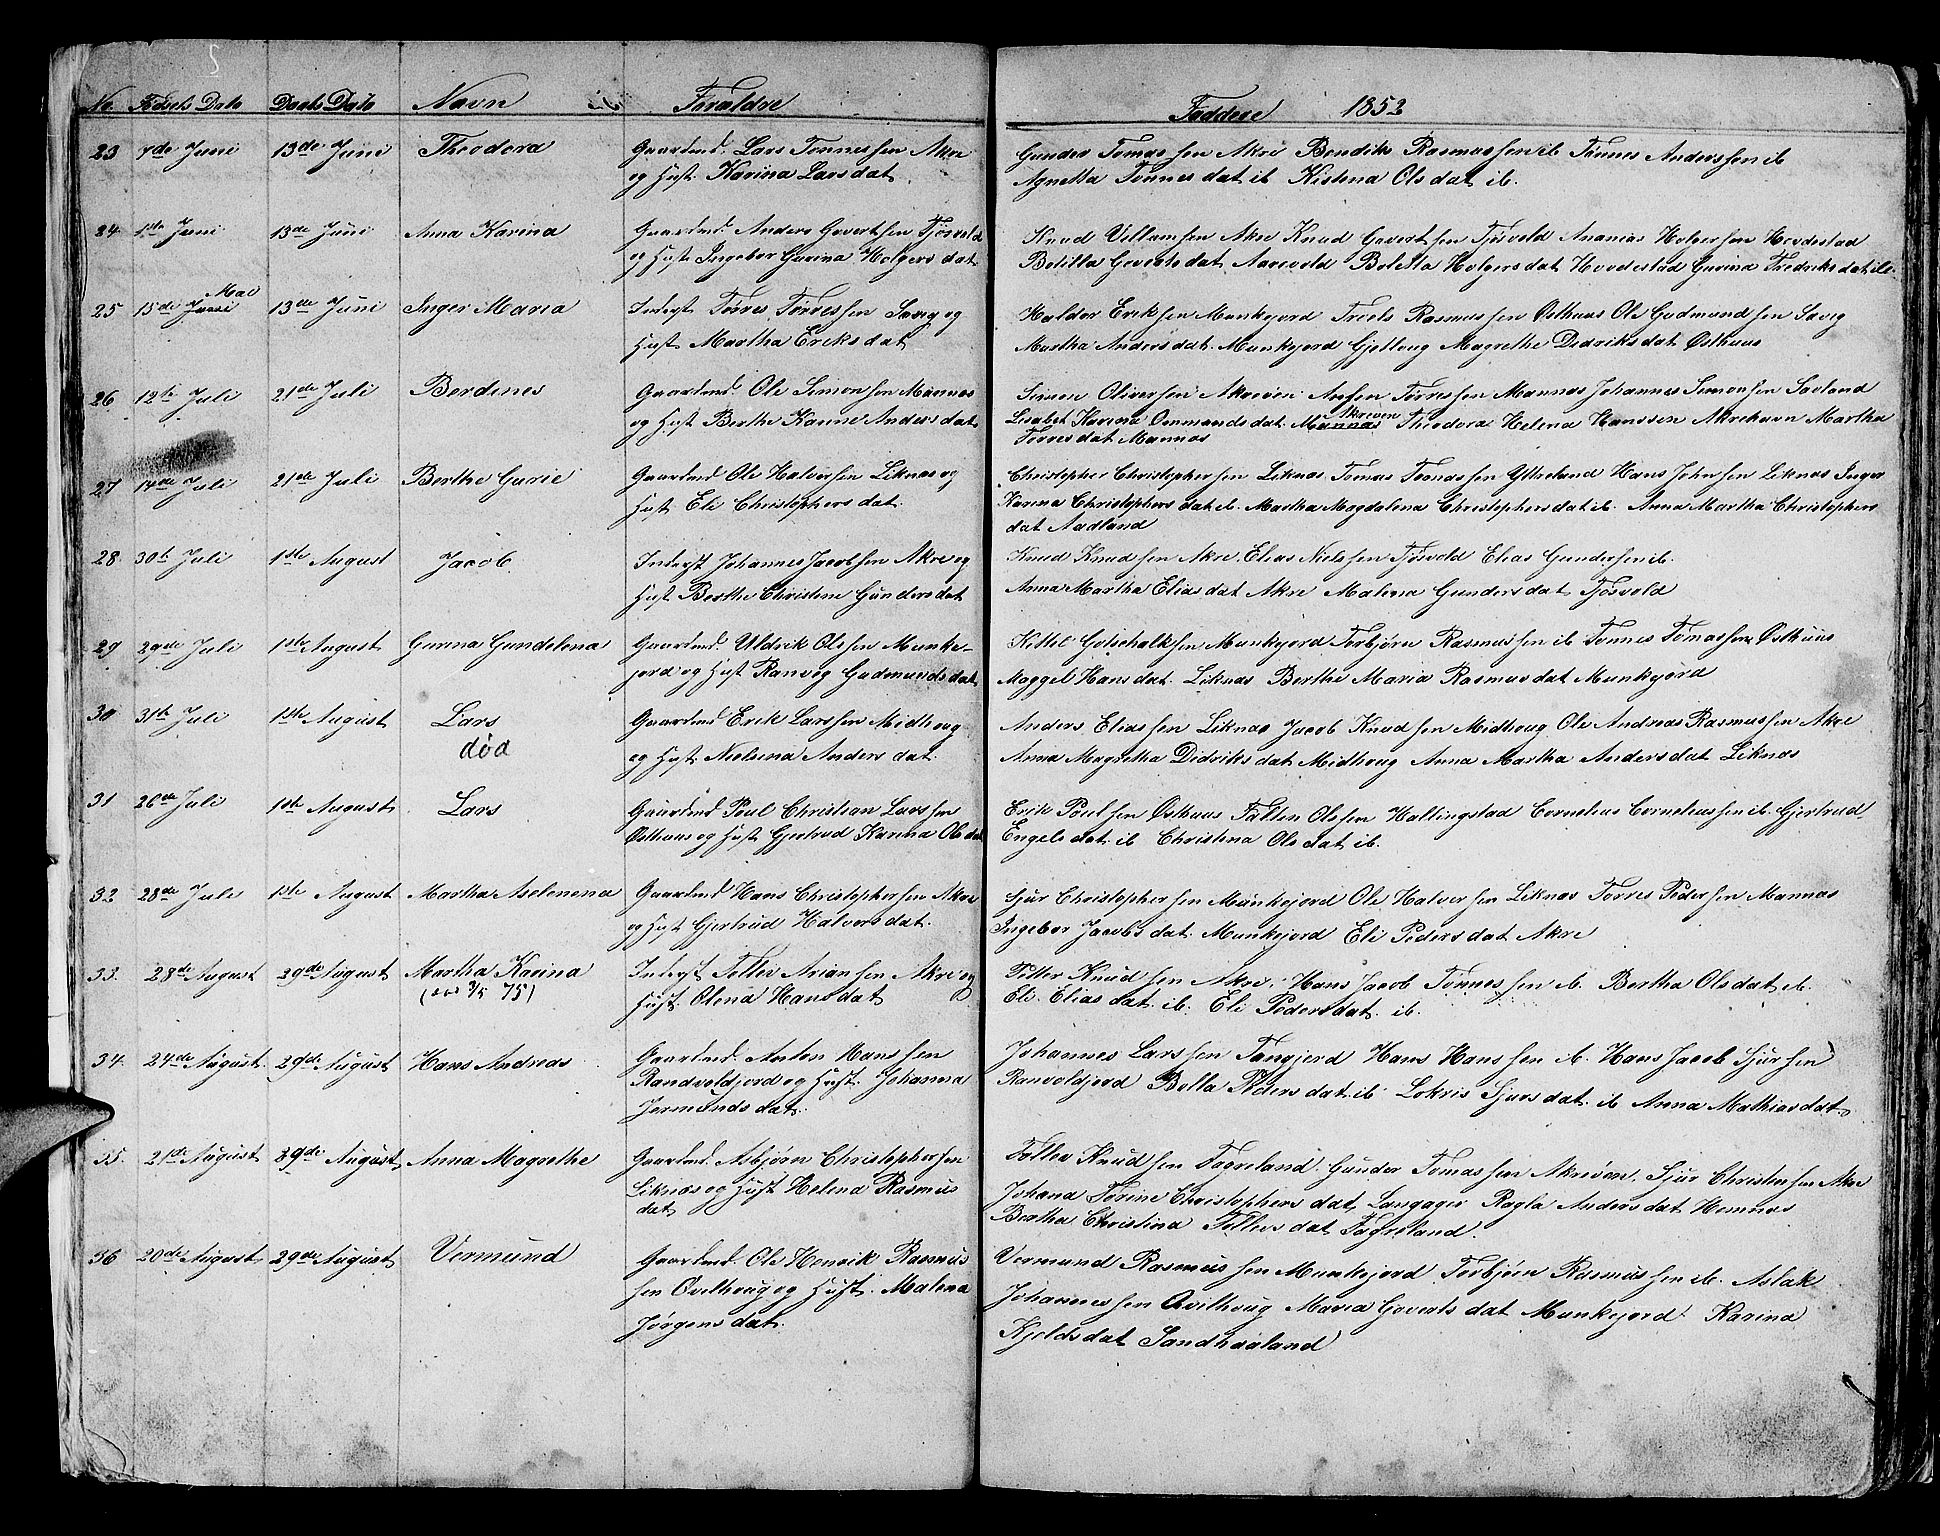 No. Fødsels Dato Daabs Dato Navn Forældre
Faddere 1852
23 7de Juni 13de Juni Theodora Gaardmd. Lars Tønnessen Akre
og Hust. Karina Larsdat.
Gunder Tomassen Akre Bendiks Rasmussen ib Tønnes Anderssen ib
Agnetha Tønnesdat ib Kistena Olsdat ib.
24 1ste Juni 13de Juni Anna Karina Gaardmd. Anders Govertsen Tjøsvold
og Hust Ingebor Gurina Holgersdat
Knud Villumsen Akre Knud Govertsen Tjøsvold Ananias Holgersen Hovdestad
Bolilla Govertsdat. Aarevold Boletta Holgersdat Hovdestad Gurina Fredriksdat ib.
Mai
25 15de Juni 13de Juni Inger Maria Inderst Tørres Tørressen Sævig og
Hust Martha Eriksdat
Haldor Eriksen Munkejord Troels Rasmussen Østhuus Ole Gudmundsen Sævig
Martha Andersdat. Munkejord Gjelloug Magrethe Didriksdat Østhuus
26 12te Juli 21de Juli Berdines Gaardmd. Ole Simonsen Mannas
og Hust Berthe Karine Andersdat
Simon Oliversen Akreøen Ansen Tørressen Mannas Johannes Simonsen Sævland
Akreøen
Lisabet Karina Ommundsdat. Mannas Theodora Helena Hanssen Akrehavn Martha
Tørresdat Mannas
27 14de Juli 21de Juli Berthe Gurie Gaardmd. Ole Halversen Liknas og
Hust. Eli Christophersdat.
Christopher Christophersen Liknas Tomas Tomassen Ytreland Hans Johnsen Liknas Inger
Karina Christophersdat ib. Martha Magdalena Christophersdat ib. Anna Martha Christophers
dat Aadland
28. 30te Juli 1ste August Jacob. Inderst Johannes Jacobsen Akre og
Hust Berthe Christine Gundersdat
Knud Knudsen Akre. Elias Nielssen Tjøsvold Elias Gundersen ib.
Anna Martha Eliasdat Akre Malena Gundersdat Tjøsvold
29 29de Juli 1ste August Gunna Gundelena Gaardmd. Uldrik Olssen Munke-
jord og Hust Ranveg Gudmundsdat
Kittel Gotschalksen Munkejord Torbjørn Rasmussen ib Tønnes Tomassen Østhuus
Maggel Hansdat. Liknas Berthe Maria Rasmusdat Munkejord
30 31te Juli 1ste August Lars Gaardmd Erik Larssen Midhoug
død og Hust. Nielsina Andersdat.
Anders Eliassen Liknas Jacob Knudsen Midhoug Ole Andreas Rasmussen Akre
Anna Magretha Didriksdat Midhoug Anna Martha Andersdat Liknas
31 26de Juli 1ste August Lars Gaardmd Poul Christian Larssen
Østhuus og Hust Gjertrud Karina Olsdat
Erik Poulsen Østhuus Fallen Olssen Hallingstad Cornelius Corneliussen ib. Gjertrud
Engelsdat ib Christina Olsdat ib.
32 28de Juli 1ste August Martha Aselenena Gaardmd Hans Christophersen Akre
og Hust Gjertrud Halversdat.
Sjur Christophersen Munkejord Ole Halversen Liknas Tørres Pedersen Mannas
Ingebor Jacobsdat. Munkejord Eli Pedersdat Akre
33. 28de August 29de August Martha Karina Inderst Tollev Ariansen Akre og
( 3/5 75) Hust. Olena Hansdat
Petter Knudsen Akre. Hans Jacob Tønnessen ib. Bertha Olsdat ib.
Eli. Eliasdat. ib. Eli Pedersdat. ib.
34. 24de August 29de August Hans Andreas Gaardmd. Anton Hanssen
Randvoldjord og Hust. Johanna
Jermundsdat.
Johannes Larssen Tangjerd Hans Hanssen ib. Hans Jacob Sjursen
Ranvoldjord Bolla Pedersdat. ib Lokris Sjursdat. ib Anna Mathiasdat
35. 21de August 29de August Anna Magrethe Gaardmd. Asbjørn Christophersen
Liknæs og Hust Helena Rasmus
dat
Tollev Knudsen Fagreland. Gunder Tomassen Akreøen. Sjur Christensen Akre
Johana Torine Christophersdat, Langager Ragla Andersdat Hemnas
Bertha Christina Tollevsdat Fagreland.
36 20de August 29de August Vermund Gaardmd. Ole Henrik Rasmus
sen Qvilhoug og Hust. Malena
Jørgensdat.
Vermund Rasmussen Munkejord Torbjørn Rasmussen ib. Aslak
Johannessen Qvilhoug Maria Govertsdat Munkejord. Karina
Kjeldsdat Sandhaaland